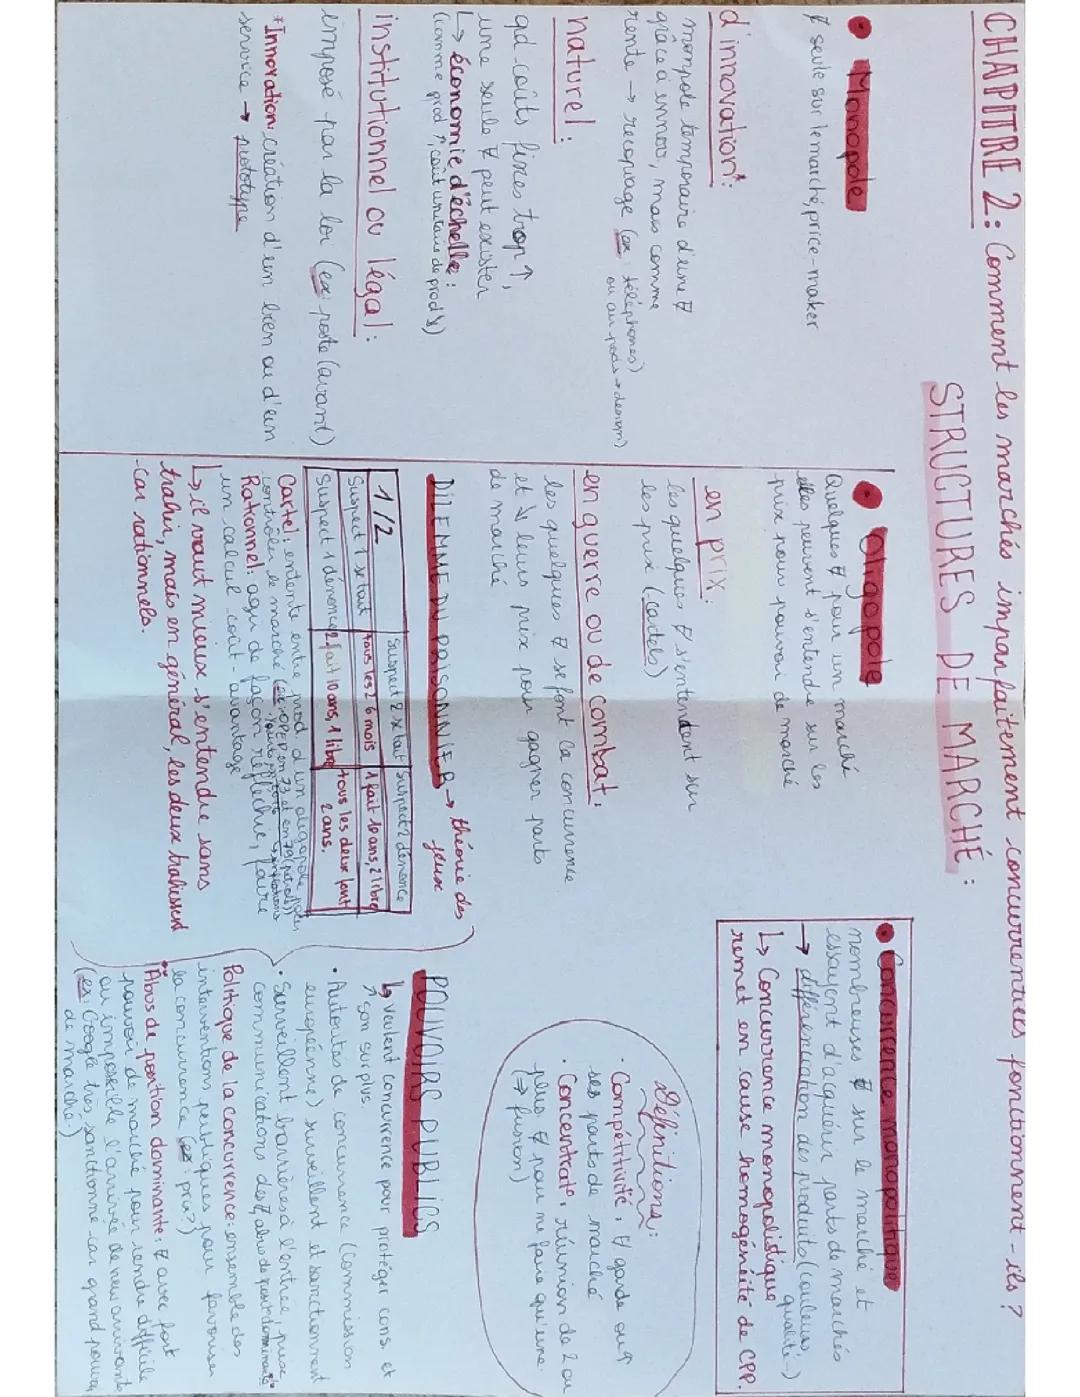 CHAPITRE 2: Comment les marchés imparfaitement concurrentiels fonctionnent-ils?
STRUCTURES DE MARCHÉ:
• Monopole
seule sur le marché, price-maker
d'innovation*:
monopole temporaire d'une
grâce à innov, mais comme
rente → recopiage (ex téléphones)
ou au poids → design)
naturel:
qd coûts fixes trop ↑,
une seule peut exister
↳ économie d'échelle:
(comme prod ↑, coût unitaire de prod ↘)
institutionnel ou légal:
imposé par la loi (ex: poste (avant)
*Innovation: création d'un bien ou d'un
service → prototype
• Oligopole
Quelques pour un marché
elles peuvent s'entendre sur les
prix pour pouvoir de marché
en prix:
les quelques s'entendent sur
les prix (cartels)
en guerre ou de combat:
les quelques se font la concurrence
et ↘ leurs prix pour gagner parts
de marché
DILEMME DU PRISONNIER → théorie des
jeux
1/2 Suspect 2 se tait Suspect 2 dénonce
Suspect 1 se tait tous les 2 6 mois 1 fait 10 ans, 2 libre
Suspect 1 dénonce 2 fait 10 ans, 1 libre tous les deux font
2 ans.
Cartel: entente entre prod d'un oligopole pour
contrôler le marché (ex: OPEP en 73 et en 79 (pétrole))
Rationnel: agir de façon réfléchie, faire
un calcul coût-avantage
↳ il vaut mieux s'entendre sans
trahir, mais en général, les deux trahissent
car rationnels.
• Concurrence monopolitique
nombreuses sur le marché et
essayent d'acquérir parts de marchés
→ différenciation des produits (couleurs,
qualité..)
↳ Concurrence monopolistique
remet en cause homogénéité de CPP.
Définitions:
• Compétitivité: garde ou ↑
ses parts de marché
• Concentrat°: réunion de 2 ou
plus pour ne faire qu'une
(⇒ fusion)
POUVOIRS PUBLICS
↳ veulent concurrence pour protéger cons. et
↗ son surplus.
• Autorités de concurrence (Commission
européenne) surveillent et sanctionnent
• Surveillent barrières à l'entrée, prix
communications des, abus de posit° dominante
Politique de la concurrence: ensemble des
interventions publiques pour favoriser
la concurrence (ex: prix>)
Abus de position dominante: avec fort
pouvoir de marché pour rendre difficile
ou impossible l'arrivée de new arrivants
(ex: Google très sanctionné car grand pouvoir
de marché.)